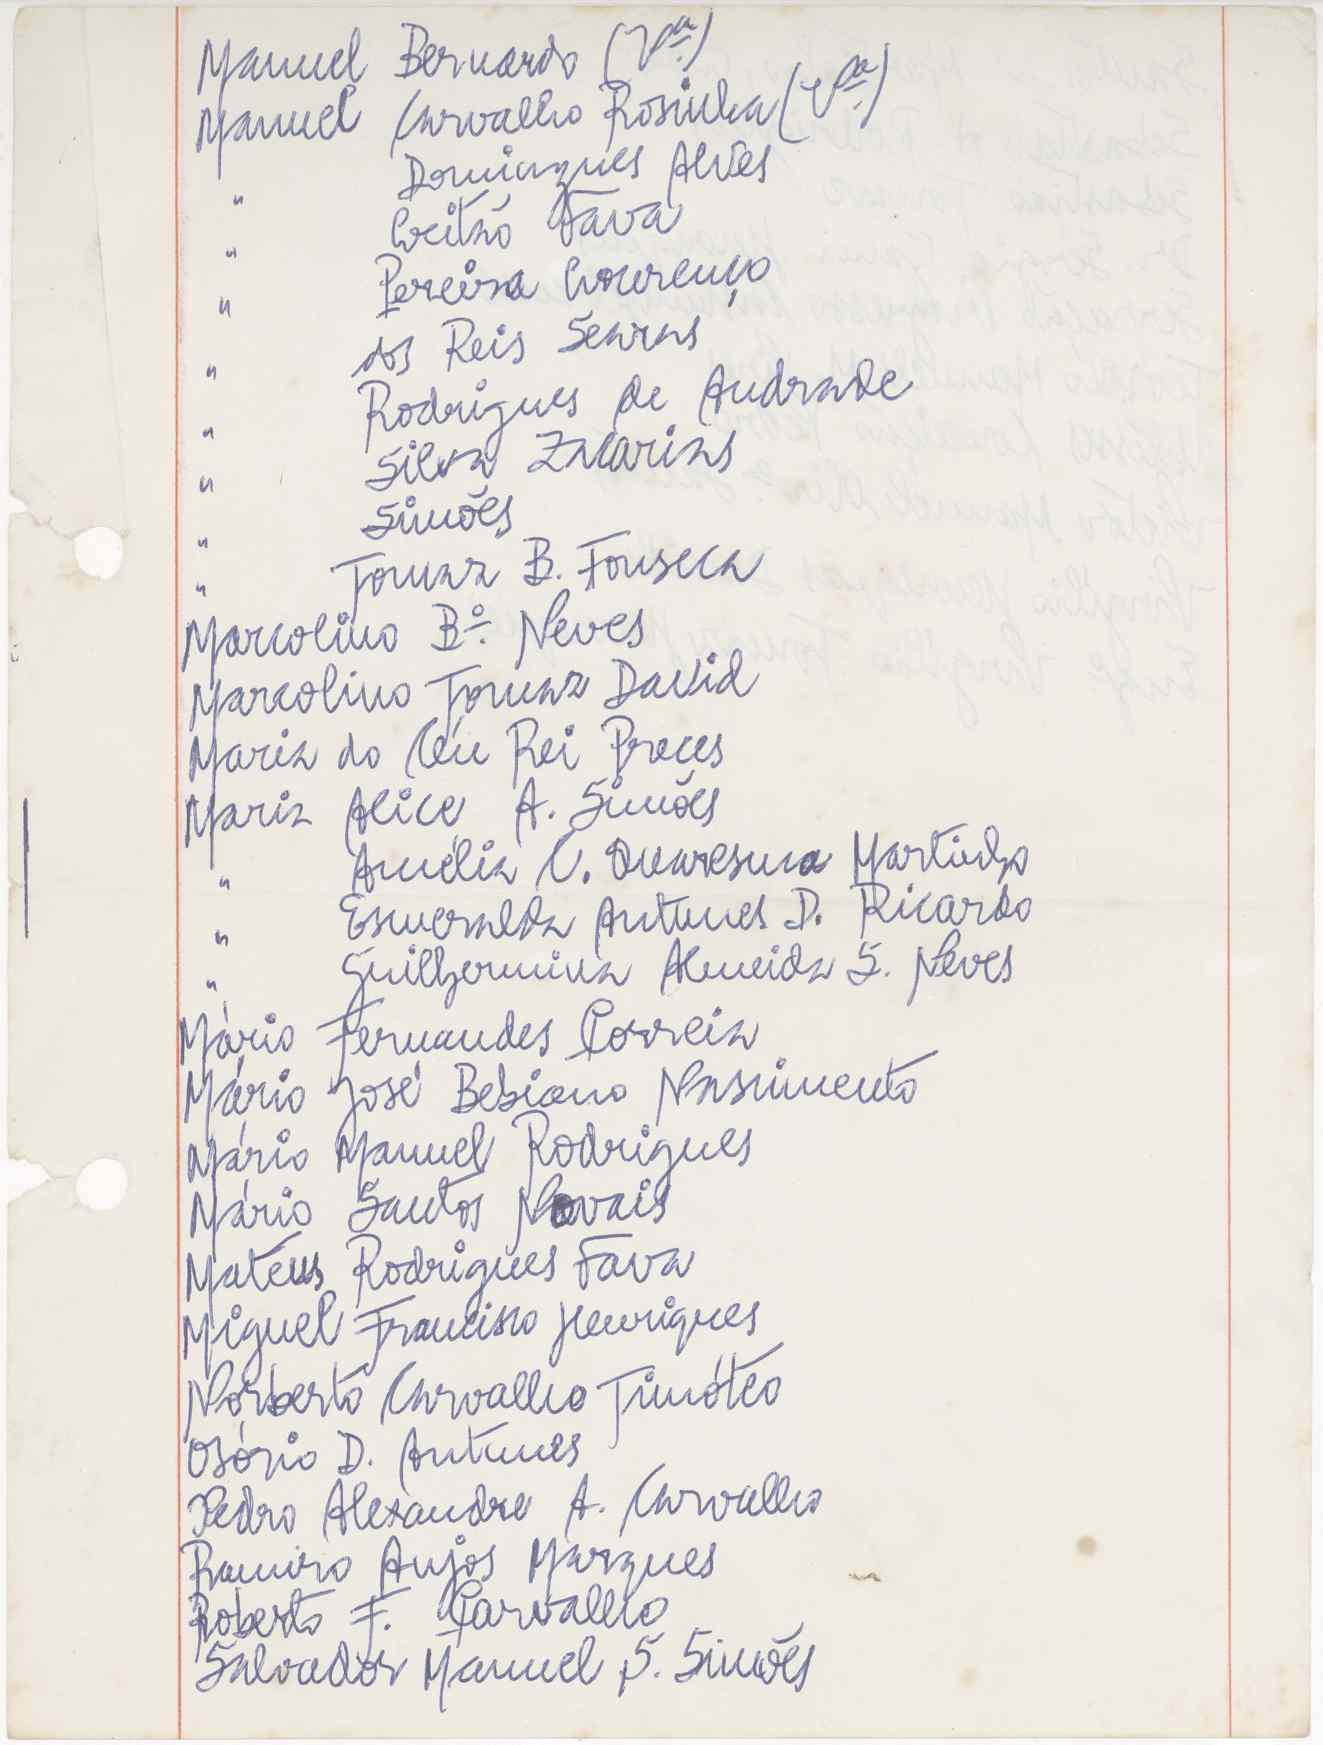 Manuel Bernardo (Vª.)
Manuel Carvalho Rosinha (Vª.)
" Domingues Alves
" Leitão Fava
" Pereira Lourenço
" dos Reis Searas
" Rodrigues de Andrade
" Silva Zacarias
" Simões
" Tomaz B. Fonseca
Marcolino Bº. Neves
Marcolino Tomaz David
Maria do Céu Rei Preces
Maria Alice A. Simões
" Amélia C. Quaresma Martinho
" Esmeralda Antunes D. Ricardo
" Guilhermina Almeida S. Neves
Mário Fernandes Correia
Mário José Bebiano Nascimento
Mário Manuel Rodrigues
Mário Santos Novais
Mateus Rodrigues Fava
Miguel Francisco Henriques
Norberto Carvalho Timóteo
Osório D. Antunes
Pedro Alexandre A. Carvalho
Ramiro Anjos Marques
Roberto F. Carvalho
Salvador Manuel S. Simões